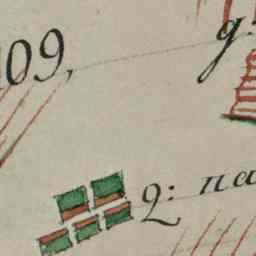 09,
g
2: na